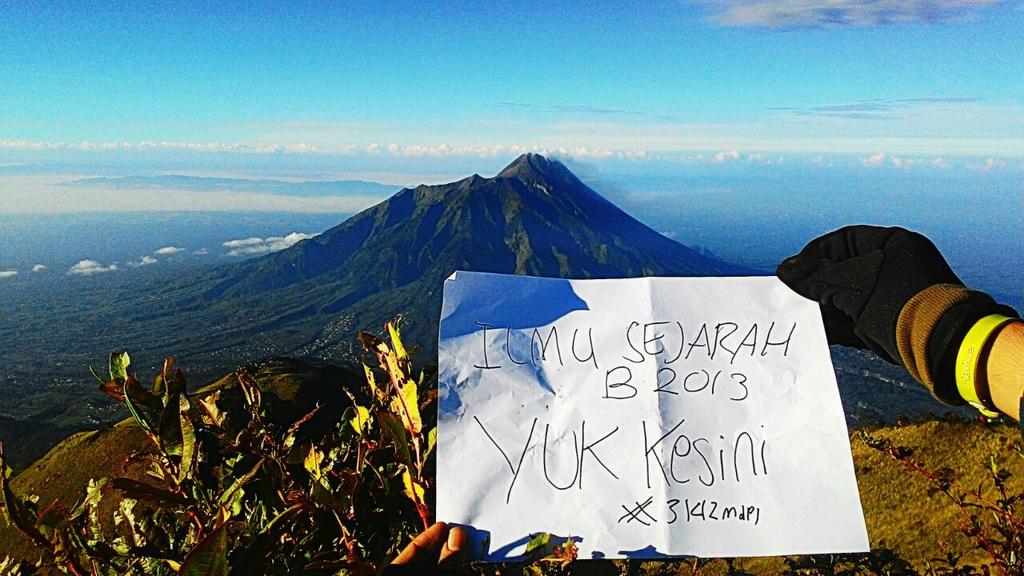 ILMU SEJARAH
B 2013
YUK Kesini
3142mdpl